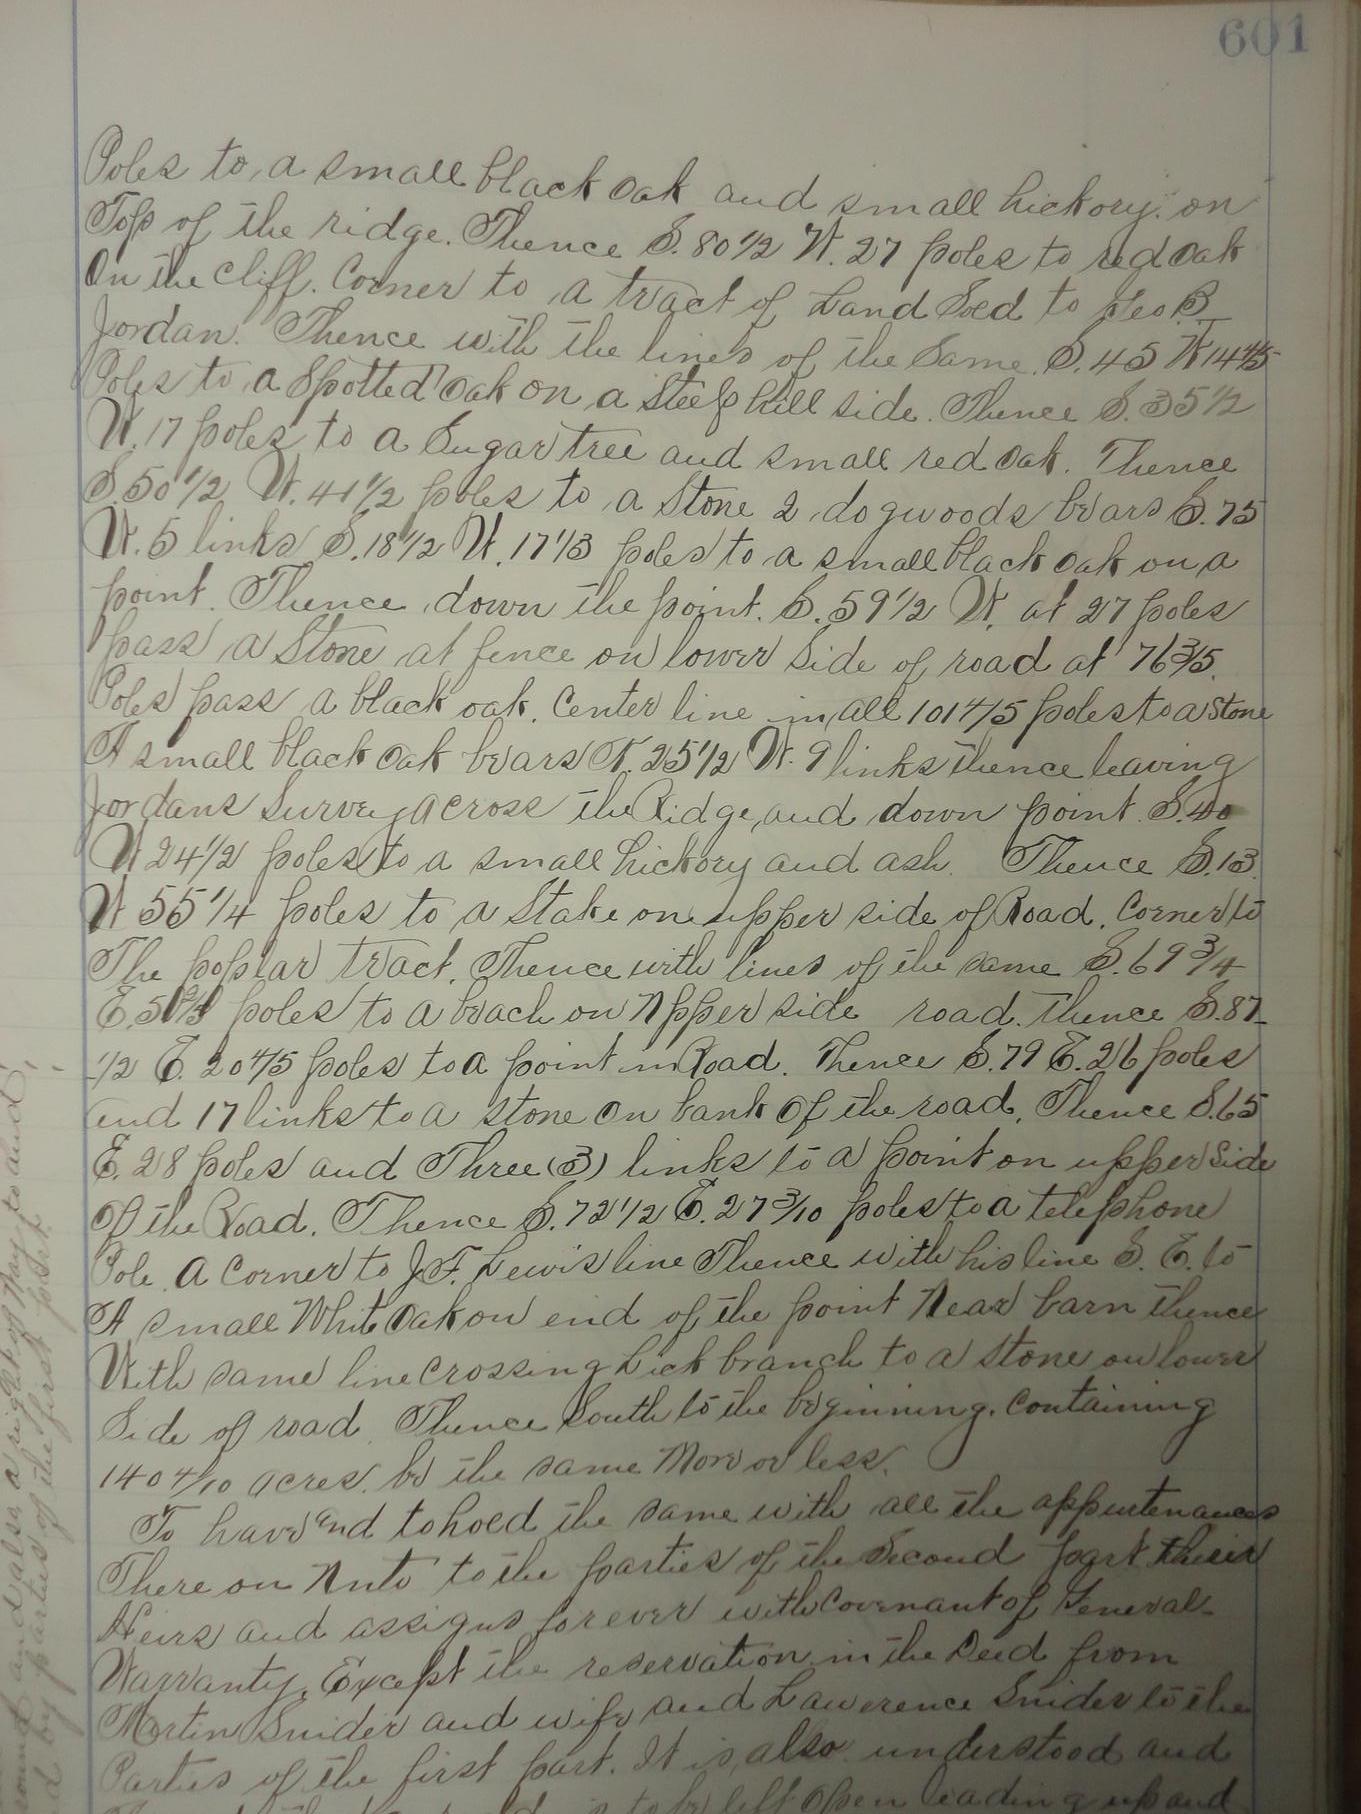 601
Poles to a small black oak and small hickory. on
Top of the ridge. Thence S. 80 1/2 W. 27 poles to red oak
On the cliff. Corner to a tract of Land Sold to Geo. B.
Jordan. Thence with the lines of the Same. S. 45 W 14 4/5
Poles to a Spotted Oak on a Steep hill side. Thence S. 35 1/2
W. 17 poles to a Sugar tree and small red oak. Thence
S. 50 1/2 W. 41 1/2 poles to a Stone 2 dogwoods bears S. 75
W. 5 links S. 18 1/2 W. 17 1/3 poles to a small black oak on a
point. Thence down the point. S. 59 1/2 W. at 27 poles
pass a Stone at fence on lower Side of road at 76 3/5.
Poles pass a black oak. Center line in all 101 4/5 poles to a Stone
A small black oak bears N. 25 1/2 W. 9 links thence leaving
Jordans Survey across the Ridge, and down point. S. 40
W 24 1/2 poles to a small hickory and ash. Thence S. 13.
W 55 1/4 poles to a Stake on upper side of Road. Corner to
The poplar tract. Thence with lines of the same S. 69 3/4
E. poles to a beach on Upper side road. thence S. 87
1/2 E. 20 4/5 poles to a point in Road. Thence S. 79 E. 26 poles
and 17 links to a stone on bank of the road. Thence S. 65
E. 28 poles and Three (3) links to a point on upper side
Of the Road. Thence S. 72 1/2 E. 27 3/10 poles to a telephone
Pole. A Corner to J.F. Lewis line Thence with his line S. E. to
A small White Oak on end of the point Near barn thence
With same line crossing Lick branch to a stone on lower
Side of road. Thence South to the beginning. Containing
140 4/10 acres. be the same More or less.
To have and to hold the same with all the appurtenances
There on Unto to the parties of the Second part their
Heirs and assigns forever with Covenant of General
Warranty. Except the reservation in the Deed from
Martin Snider and wife and Lawerence Snider to the
Parties of the first part. It is also understood and
is to be left open leading up and
and also a right of Way to and
by parties of the first part.